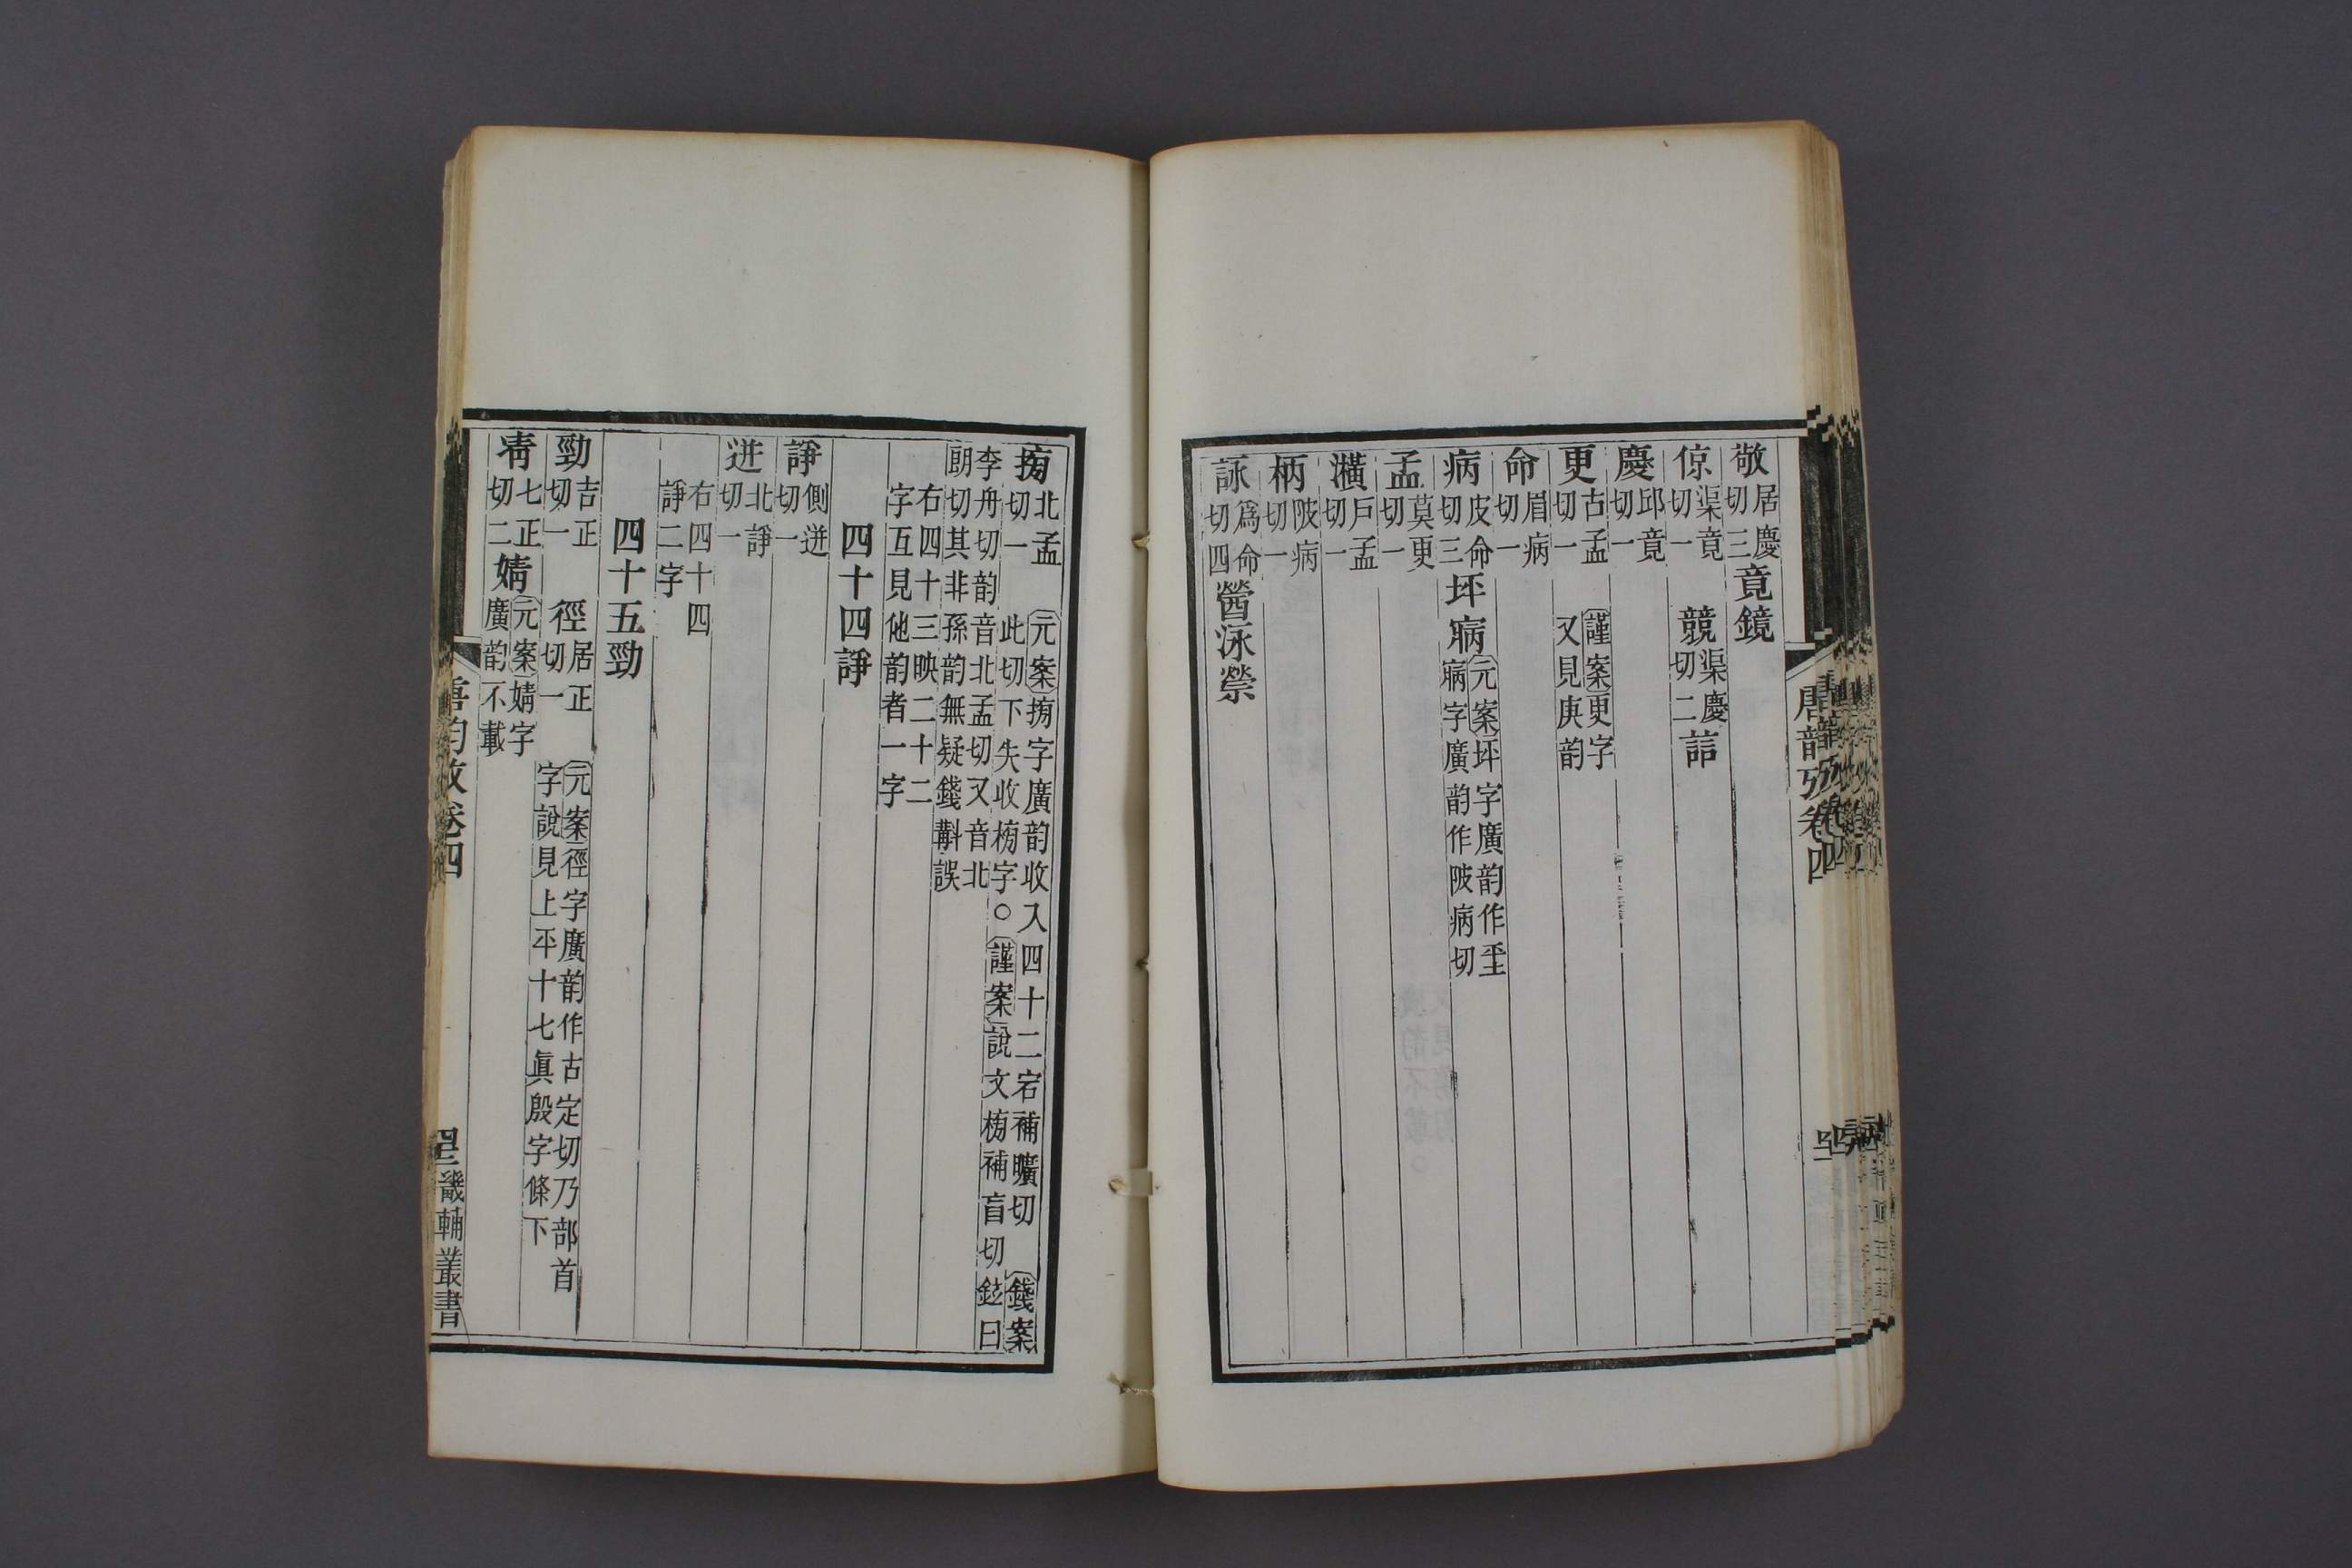 敬居慶切三竟鏡
倞渠竟切一 競渠慶切二誩
慶邱竟切一
更古孟切一 謹案更字又見庚韵
命眉病切一
病皮命切三坪㾕元案坪字廣韵作垩㾕字廣韵作陂病切
孟莫更切一
潢戶孟切一
柄陂病切一
詠爲命切四醟泳禜
唐韵攷卷四
搒北孟切一 元案搒字廣韵收入四十二宕補曠切 錢案此切下失收榜字○謹案說文榜補盲切鉉曰
李舟切韵音北孟切又音北朗切其非孫韵無疑錢斠誤
右四十三映二十二字互見他韵者一字
四十四諍
諍側迸切一
迸北諍切一
右四十四諍二字
四十五勁
勁吉正切一 徑居正切一 元案徑字廣韵作古定切乃部首字說見上平十七眞殷字條下
凊七正切二婧元案婧字廣韵不載
唐韵攷卷四
畿輔叢書